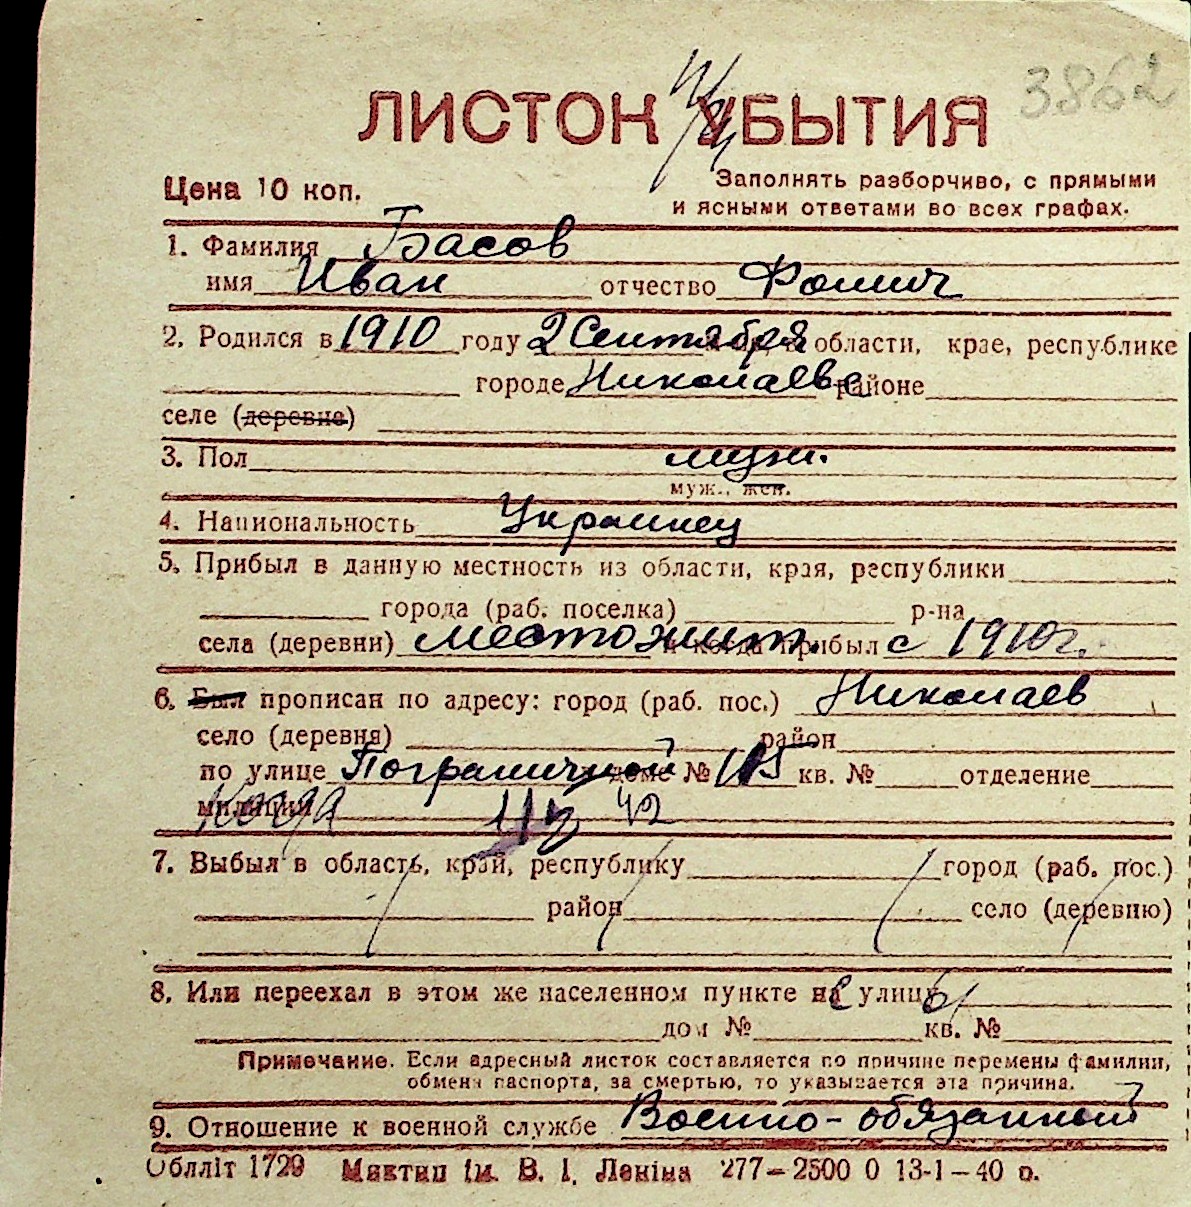 3862
ЛИСТОК УБЫТИЯ
Цена 10 коп.
Заполнять разборчиво, с прямыми
и ясными ответами во всех графах.
1. Фамилия Басов
имя Иван отчество Фомич
2. Родился в 1910 году 2 Сентября области, крае, республике
городе Николаеве районе
селе (деревне)
3. Пол муж.
муж., жен.
4. Национальность Украинец
5. Прибыл в данную местность из области, края, республики
города (раб. поселка) р-на
села (деревни) местожит. и когда прибыл с 1910 г.
6. Был прописан по адресу: город (раб. пос.) Николаев
село (деревня) район
по улице Пограничной доме № 105 кв. № отделение
милиции Когда 42
7. Выбыл в область, край, республику город (раб. пос.)
район село (деревню)
8. Или переехал в этом же населенном пункте на улицу
дом № кв. №
Примечание. Если адресный листок составляется по причине перемены фамилии,
обмена паспорта, за смертью, то указывается эта причина.
9. Отношение к военной службе Военно-обязанный
Облліт 1729 Миктип ім. В. І. Леніна 277—2500 0 13-1—40 р.